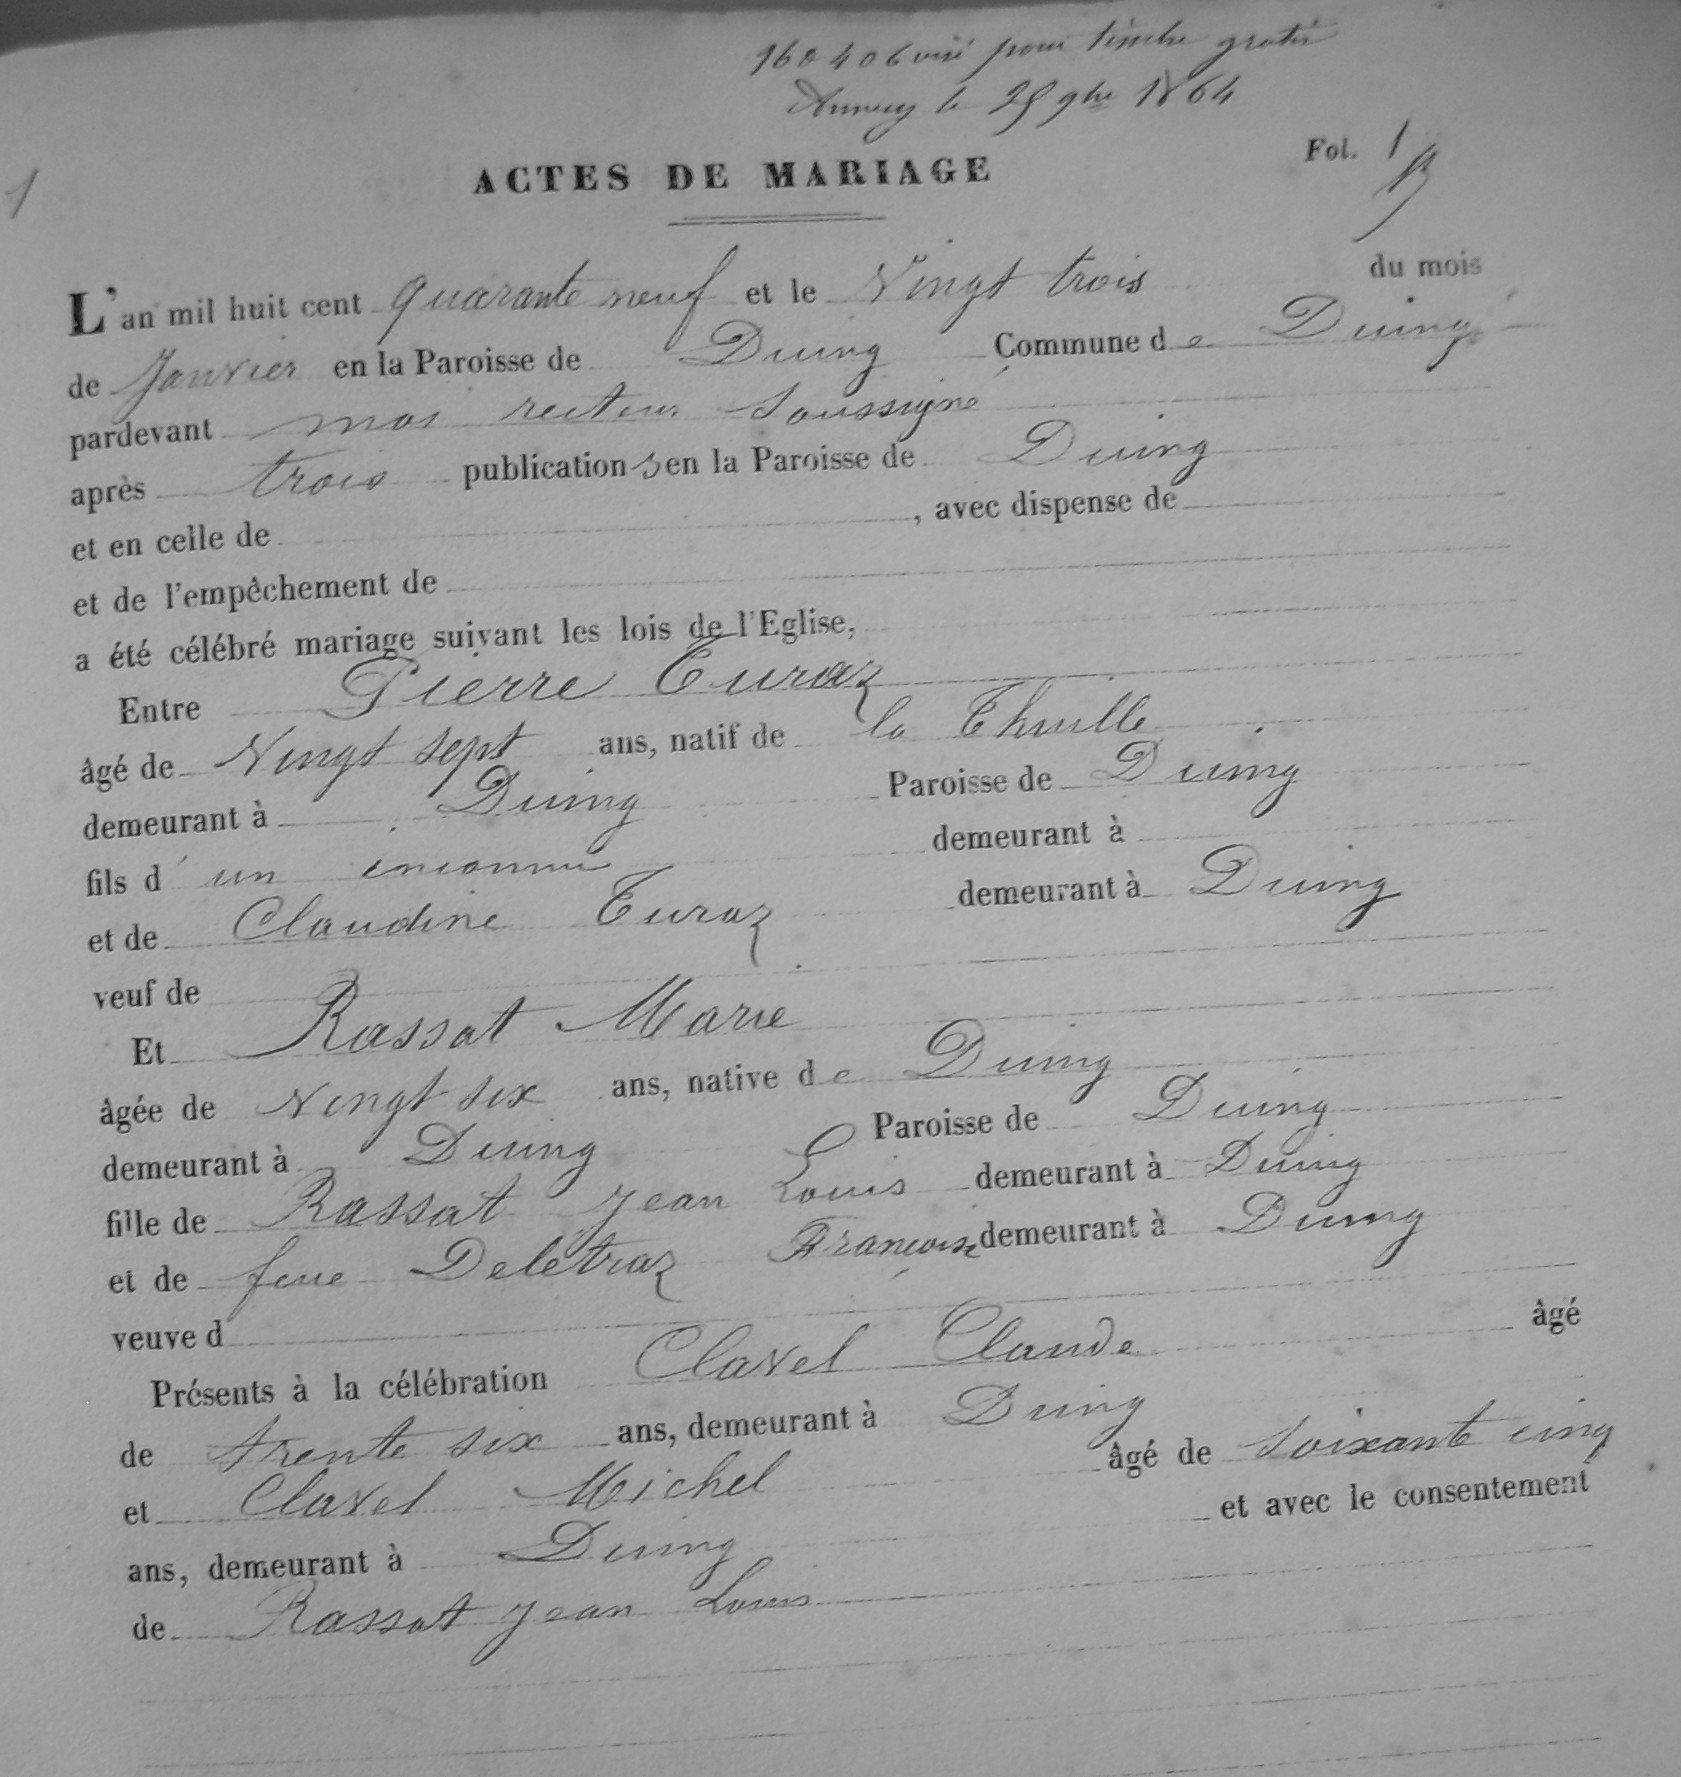 160406 visé pour timbre gratis
Annecy le 25 9bre 1864
1
Fol. 1
ACTES DE MARIAGE
L'an mil huit cent quarante neuf et le Vingt trois du mois
de Janvier en la Paroisse de Duing Commune de Duing
pardevant moi recteur soussigné
après trois publications en la Paroisse de Duing
et en celle de , avec dispense de
et de l'empêchement de
a été célébré mariage suivant les lois de l'Eglise,
Entre Pierre Curaz
âgé de Vingt sept ans, natif de la Thuille
demeurant à Duing Paroisse de Duing
fils d'un inconnu demeurant à
et de Claudine Curaz demeurant à Duing
veuf de
Et Rassat Marie
âgée de Vingt six ans, native de Duing
demeurant à Duing Paroisse de Duing
fille de Rassat Jean Louis demeurant à Duing
et de feue Deletraz Françoise demeurant à Duing
veuve d
Présents à la célébration Clavel Claude âgé
de trente six ans, demeurant à Duing
et Clavel Michel âgé de soixante cinq
ans, demeurant à Duing et avec le consentement
de Rassat Jean Louis